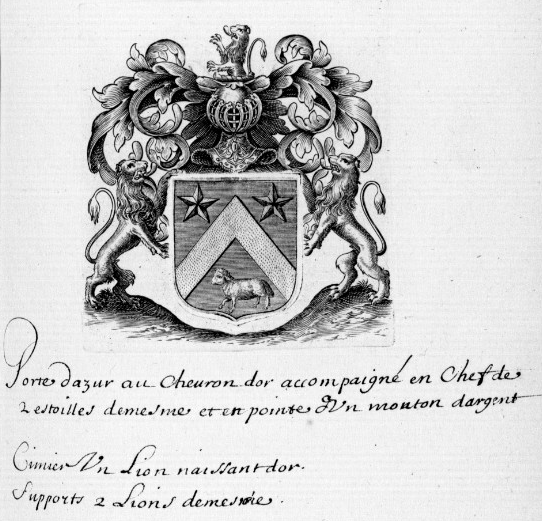 Porte dazur au Chevron dor accompaigné en Chef de
2 estoilles demesme et en pointe d'Vn mouton dargent
Cimier Vn Lion naissant dor.
Supports 2 Lions demesme.